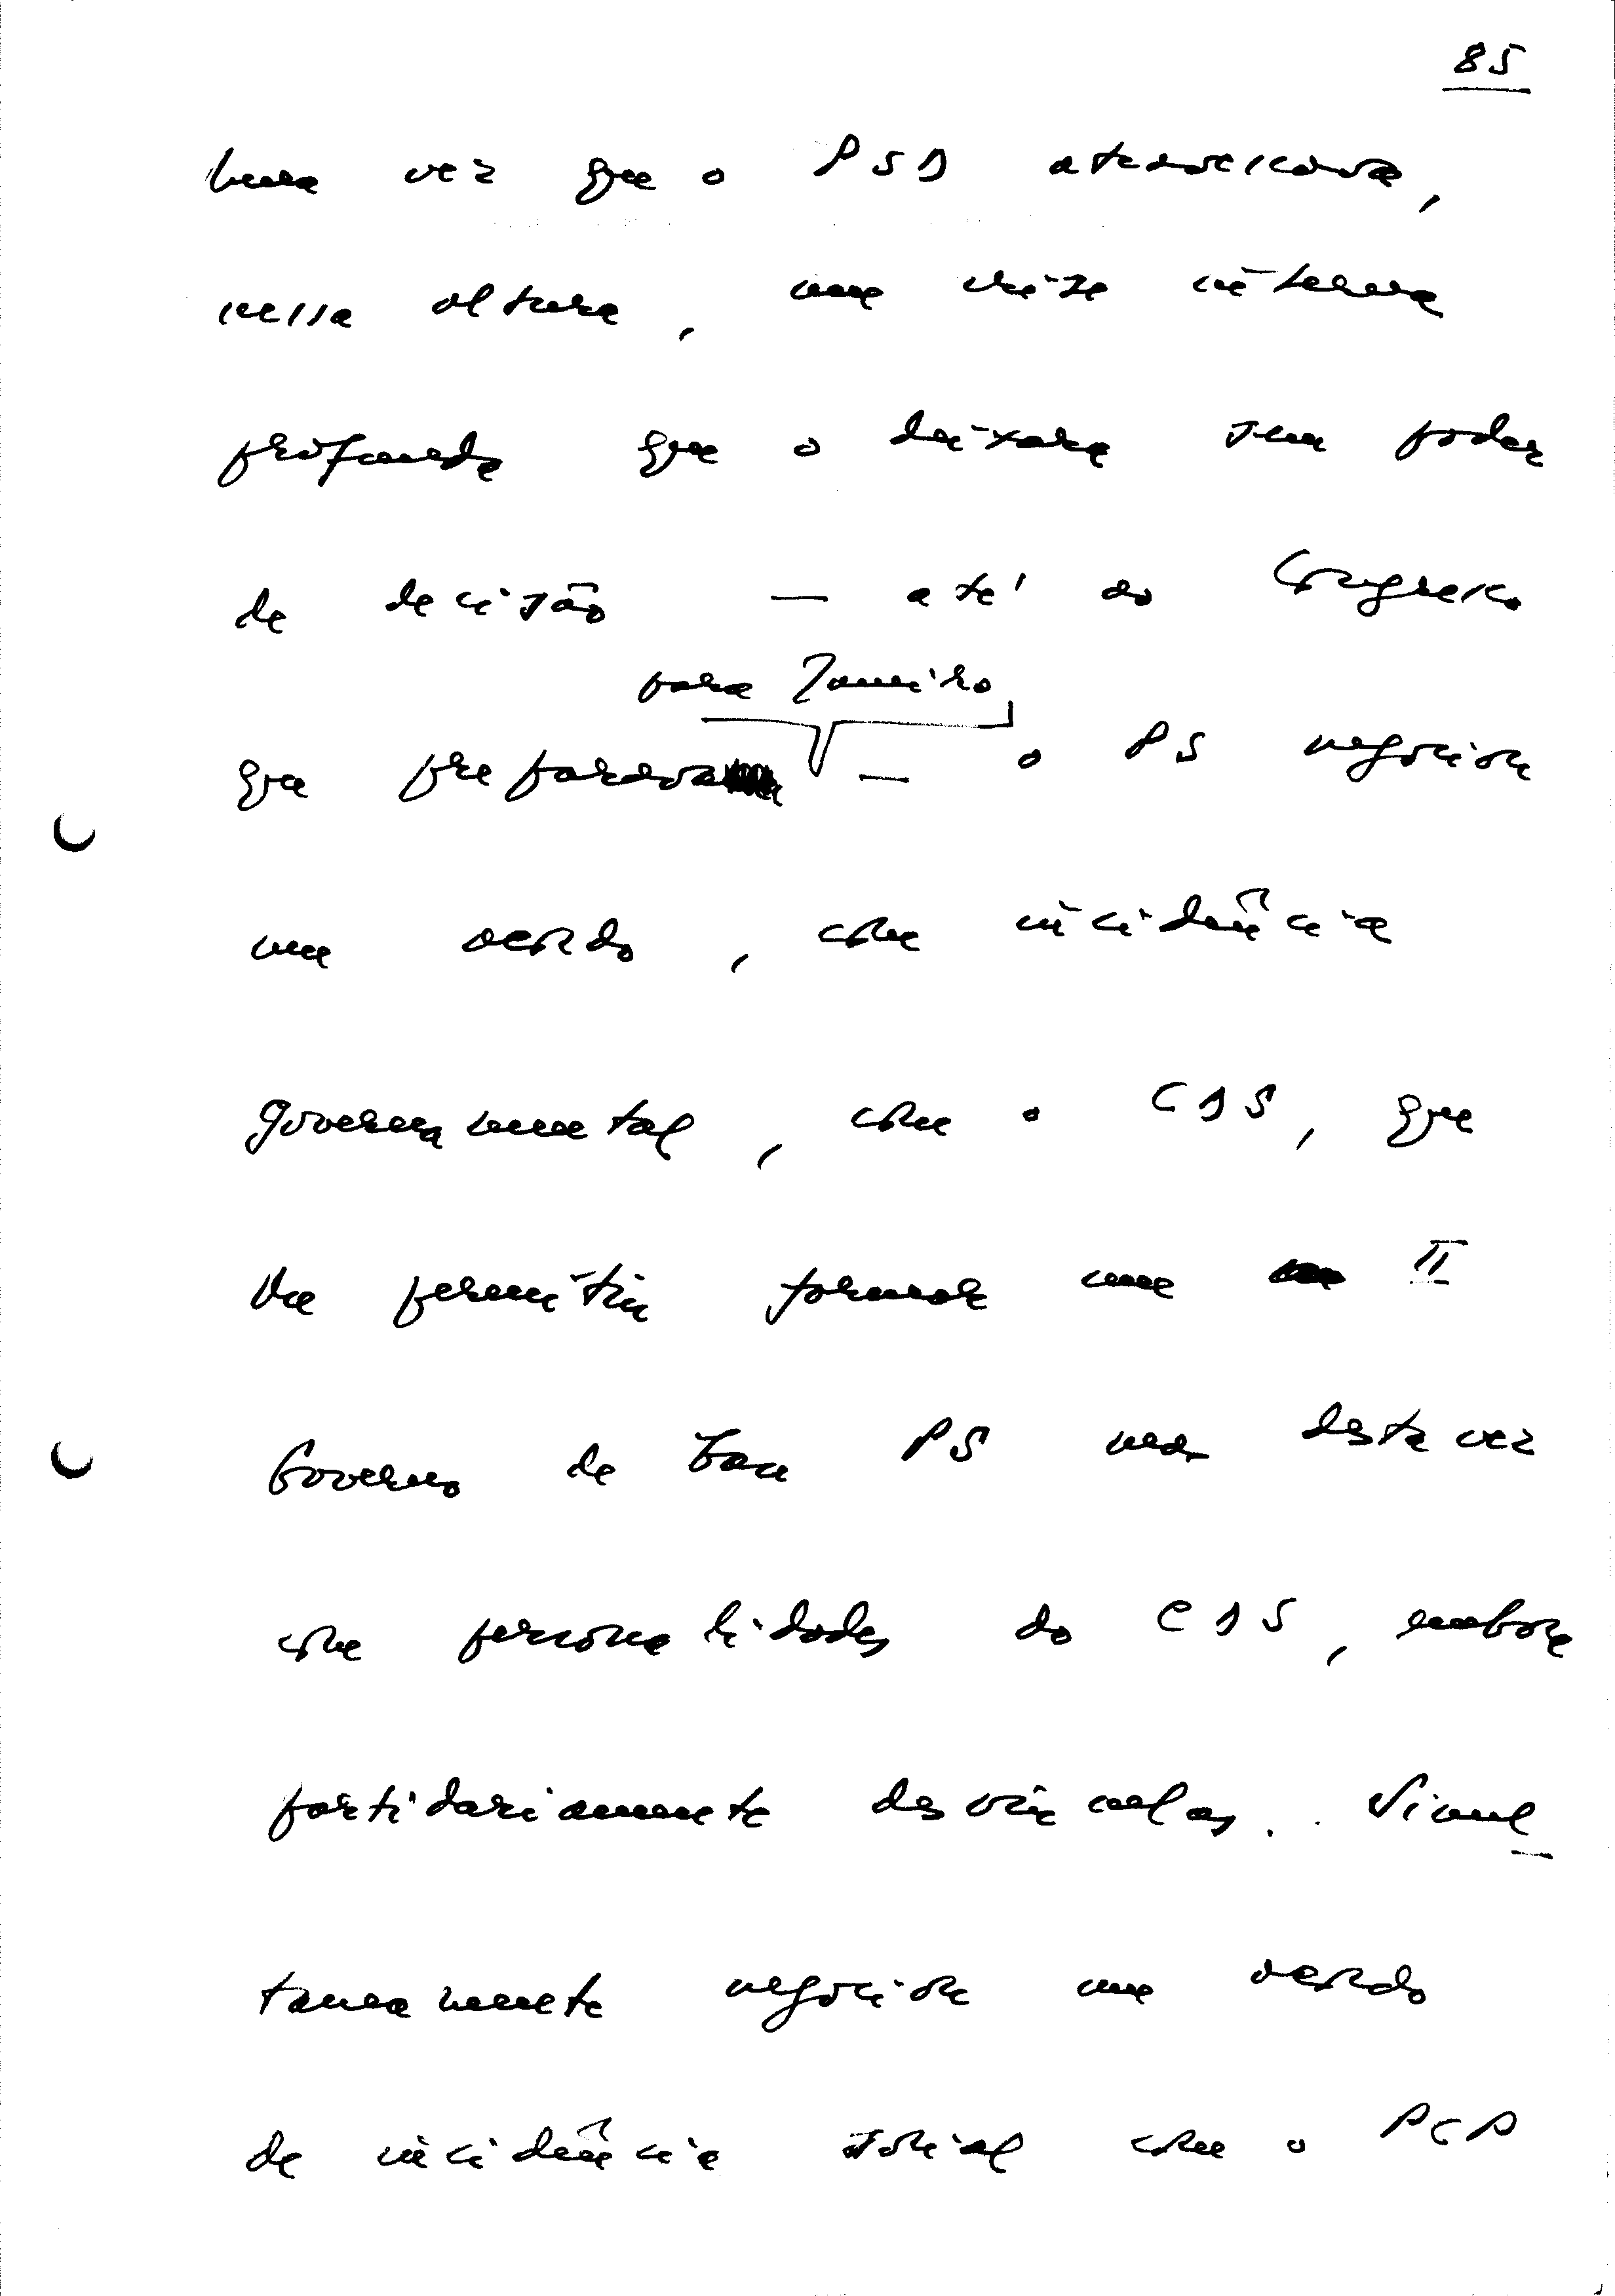 85
Uma vez que o PSD atravessava,
nessa altura, uma crise interna
profunda que o deixara sem poder
de decisão — até ao Congresso
para Janeiro
que preparava — o PS negociou
um acordo, com incidência
governamental, com o CDS, que
lhe permitiu formar um II
Governo de base PS mas desta vez
com personalidades do CDS, embora
partidariamente desvinculas. Simul_
taneamente negociou um acordo
de incidência social com o PCP